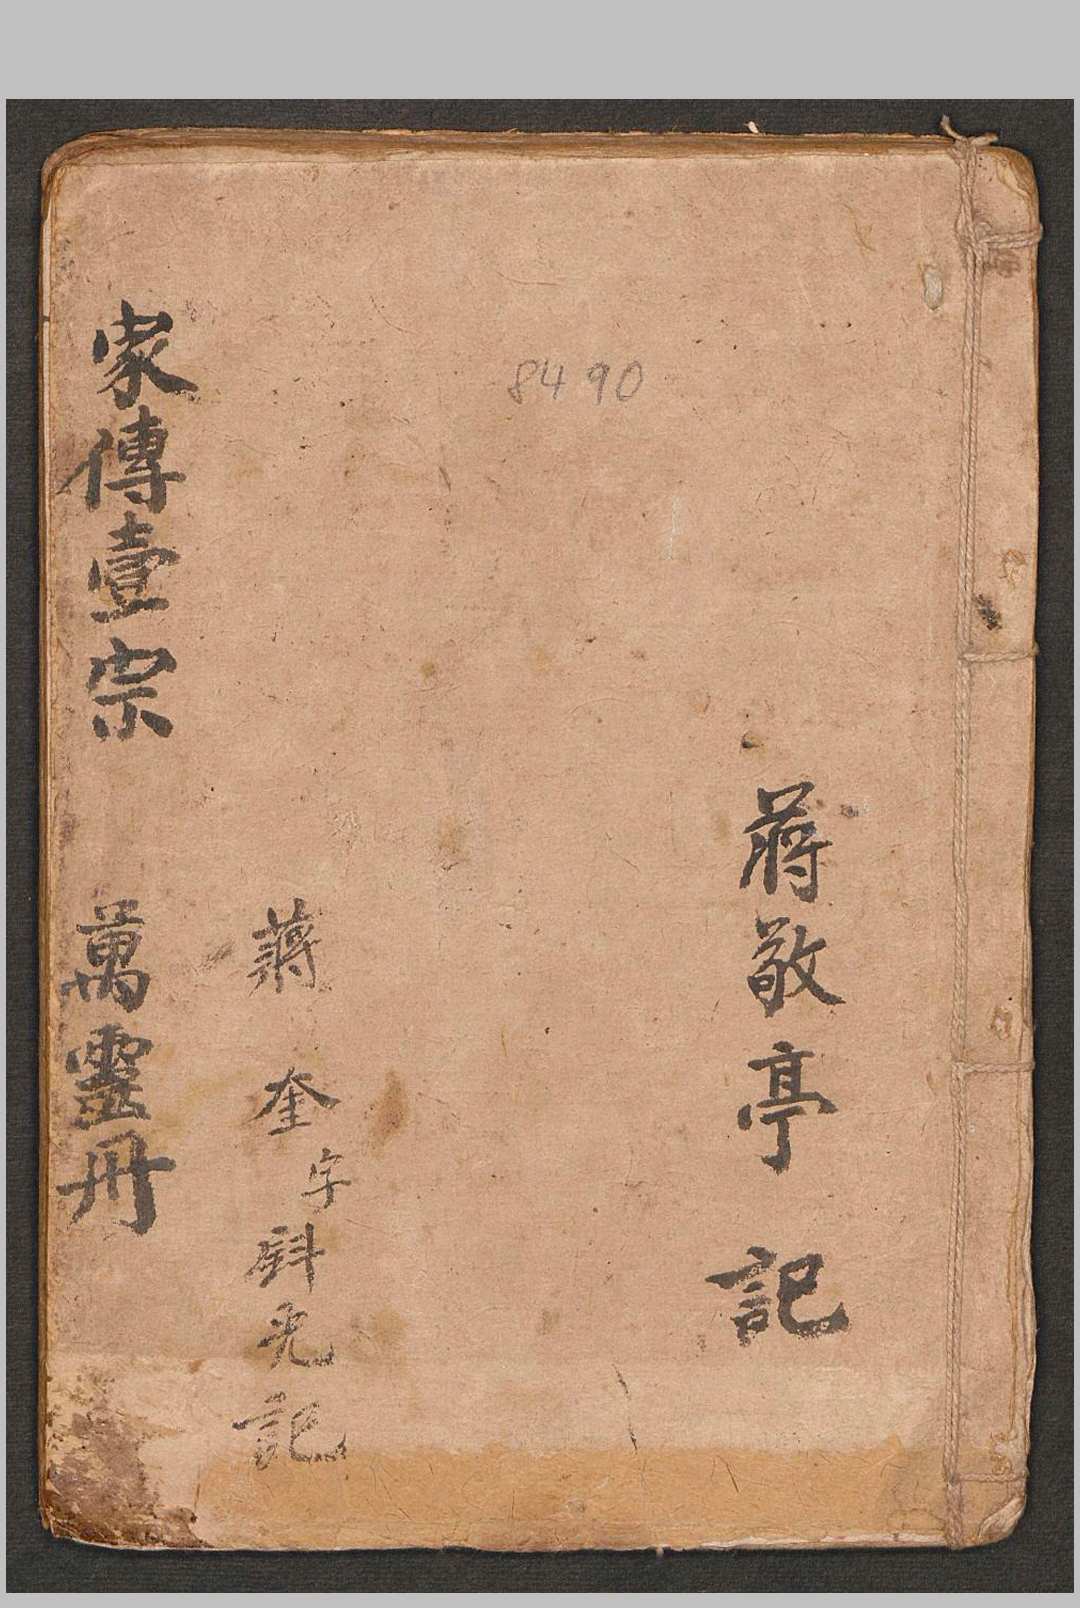 8490
蔣敬亭 記
蔣 奎字斟光記
家傳壹宗 萬靈册